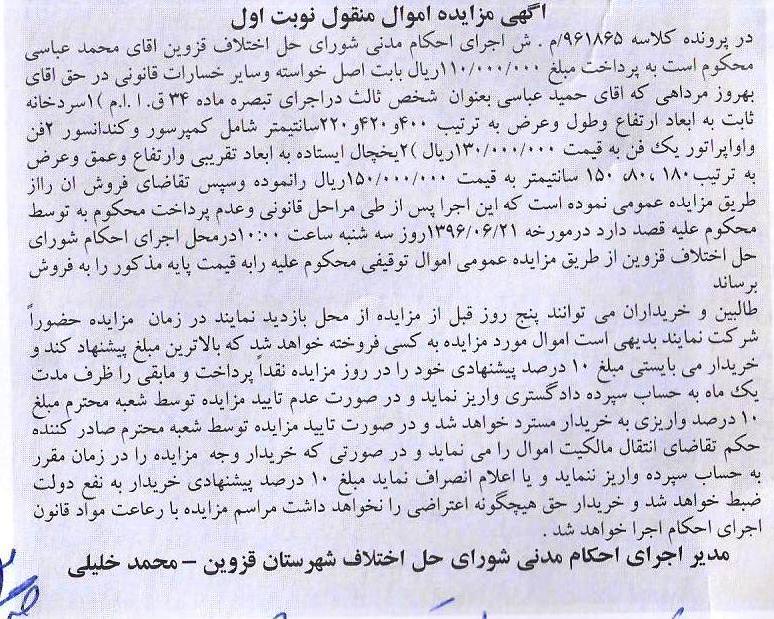 آگهی مزایده اموال منقول نوبت اول
در پرونده کلاسه ۹۶۱۸۶۵/م . ش اجرای احکام مدنی شورای حل اختلاف قزوین آقای محمد عباسی
محکوم است به پرداخت مبلغ ۱۱۰/۰۰۰/۰۰۰ریال بابت اصل خواسته وسایر خسارات قانونی در حق اقای
بهروز مرداهی که اقای حمید عباسی بعنوان شخص ثالث دراجرای تبصره ماده ۳۴ ق. ا .ا.م )۱سردخانه
ثابت به ابعاد ارتفاع وطول وعرض به ترتیب ۴۰۰و۴۲۰و۲۲۰سانتیمتر شامل کمپرسور وکندانسور ۲فن
واواپراتور یک فن به قیمت ۱۳۰/۰۰۰/۰۰۰ریال )۲یخچال ایستاده به ابعاد تقریبی وارتفاع وعمق وعرض
به ترتیب۱۸۰ ،۸۰، ۱۵۰ سانتیمتر به قیمت ۱۵۰/۰۰۰/۰۰۰ریال رانموده وسپس تقاضای فروش ان رااز
طریق مزایده عمومی نموده است که این اجرا پس از طی مراحل قانونی وعدم پرداخت محکوم به توسط
محکوم علیه قصد دارد درمورخه ۱۳۹۶/۰۶/۲۱روز سه شنبه ساعت ۱۰:۰۰درمحل اجرای احکام شورای
حل اختلاف قزوین از طریق مزایده عمومی اموال توقیفی محکوم علیه رابه قیمت پایه مذکور را به فروش
برساند
طالبین و خریداران می توانند پنج روز قبل از مزایده از محل بازدید نمایند در زمان مزایده حضوراً
شرکت نمایند بدیهی است اموال مورد مزایده به کسی فروخته خواهد شد که بالاترین مبلغ پیشنهاد کند و
خریدار می بایستی مبلغ ۱۰ درصد پیشنهادی خود را در روز مزایده نقداً پرداخت و مابقی را ظرف مدت
یک ماه به حساب سپرده دادگستری واریز نماید و در صورت عدم تایید مزایده توسط شعبه محترم مبلغ
۱۰ درصد واریزی به خریدار مسترد خواهد شد و در صورت تایید مزایده توسط شعبه محترم صادر کننده
حکم تقاضای انتقال مالکیت اموال را می نماید و در صورتی که خریدار وجه مزایده را در زمان مقرر
به حساب سپرده واریز ننماید و یا اعلام انصراف نماید مبلغ ۱۰ درصد پیشنهادی خریدار به نفع دولت
ضبط خواهد شد و خریدار حق هیچگونه اعتراضی را نخواهد داشت مراسم مزایده با رعاعت مواد قانون
اجرای احکام اجرا خواهد شد .
مدیر اجرای احکام مدنی شورای حل اختلاف شهرستان قزوین – محمد خلیلی